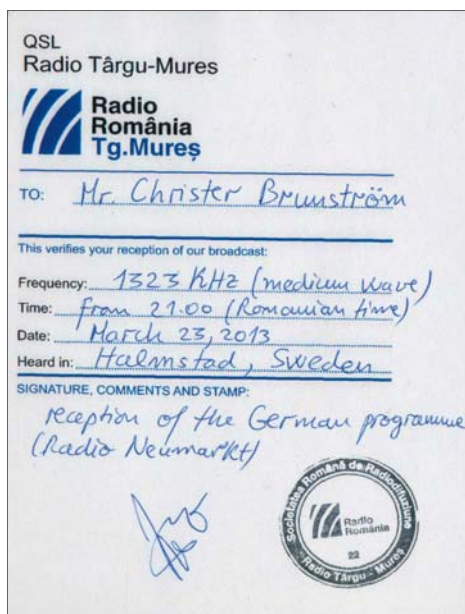 QSL
Radio Târgu-Mures
Radio
România
Tg.Mureș
TO: Mr. Christer Brunström
This verifies your reception of our broadcast:
Frequency: 1323 KHz (medium wave)
Time: from 21.00 (Romanian time)
Date: March 23, 2013
Heard in: Halmstad, Sweden
SIGNATURE, COMMENTS AND STAMP:
reception of the German programme
(Radio Neumarkt)
Societatea Română de Radiodifuziune
Radio
România
22
Radio Târgu - Mureș